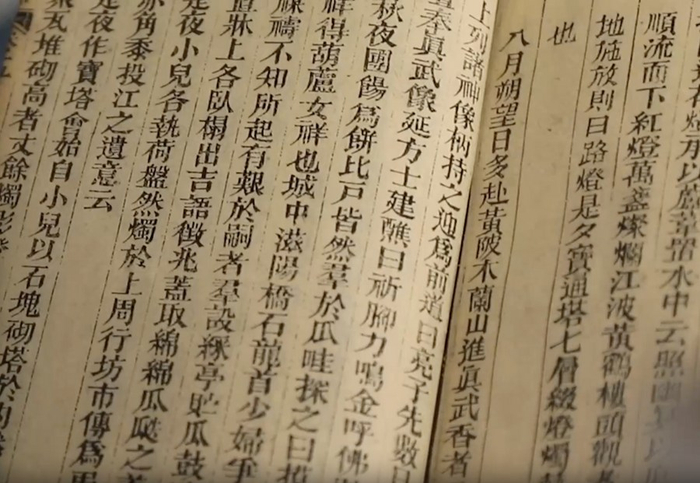 水中云照
順流而下紅燈萬盞燦爛江波黃鶴樓頭觀
地施放則曰路燈是夕寶通塔七層綴燈燭
也
八月朔望日多赴黃陂木蘭山進眞武香者
上列諸神像柄持之迎爲前道曰亮子先數日
奉眞武像延方士建醮曰祈腳力鳴金呼佛
秋夜團餳爲餅比戸皆然羣於瓜哇探之曰摸
祥得葫蘆女祥也城中滋陽橋石龍首少婦爭
禖禱不知所起有艱於嗣者羣設綵亭貯瓜鼓
置牀上各臥榻出吉語徵兆蓋取綿綿瓜瓞之
是夜小兒各執荷盤然燭於上周行坊市傳爲
角黍投江之遺意云
是夜作寶塔會始自小兒以石塊砌塔於
瓦堆砌高者丈餘燭影